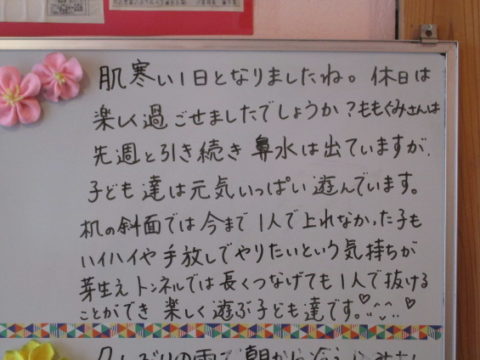 肌寒い1日となりましたね。休日は
楽しく過ごせましたでしょうか?ももぐみさんは
先週と引き続き鼻水は出ていますが、
子ども達は元気いっぱい遊んでいます。
机の斜面では今まで1人で上れなかった子も
ハイハイや手放しでやりたいという気持ちが
芽生えトンネルでは長くつなげても1人で抜ける
ことができ楽しく遊ぶ子ども達です。